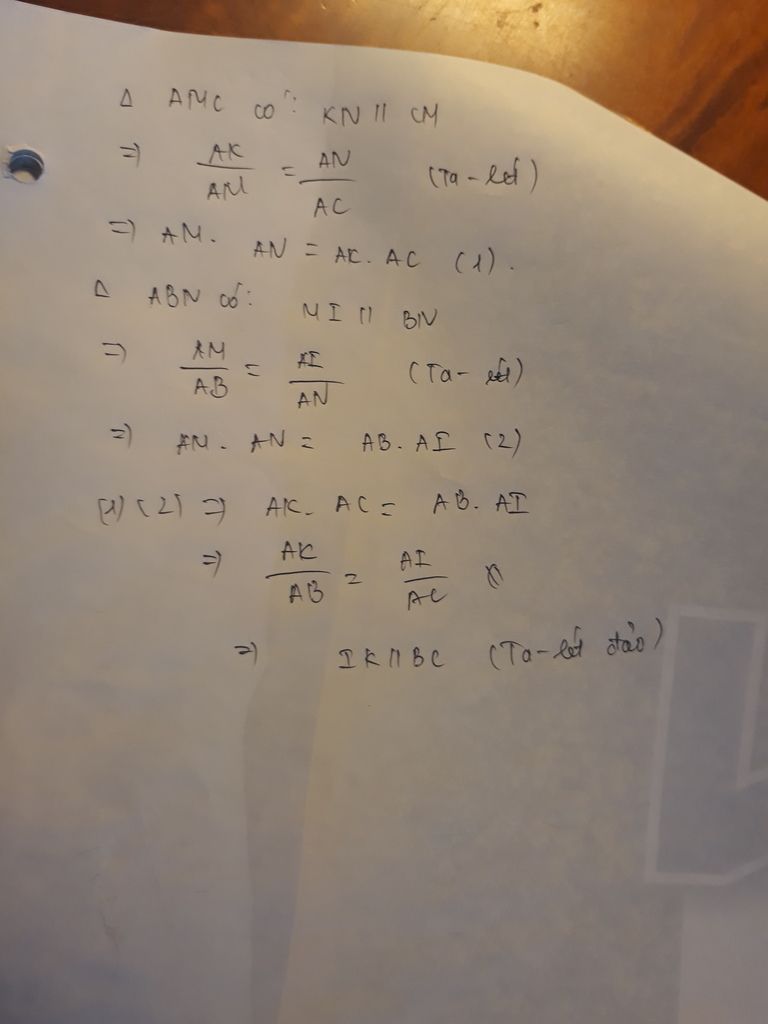 Δ AMC có: KN // CM
=> AK/AM = AN/AC (Ta-lét)
=> AM. AN = AK. AC (1).
Δ ABN có: MI // BN
=> AM/AB = AI/AN (Ta-lét)
=> AM. AN = AB. AI (2)
(1) (2) => AK. AC = AB. AI
=> AK/AB = AI/AC
=> IK // BC (Ta-lét đảo)